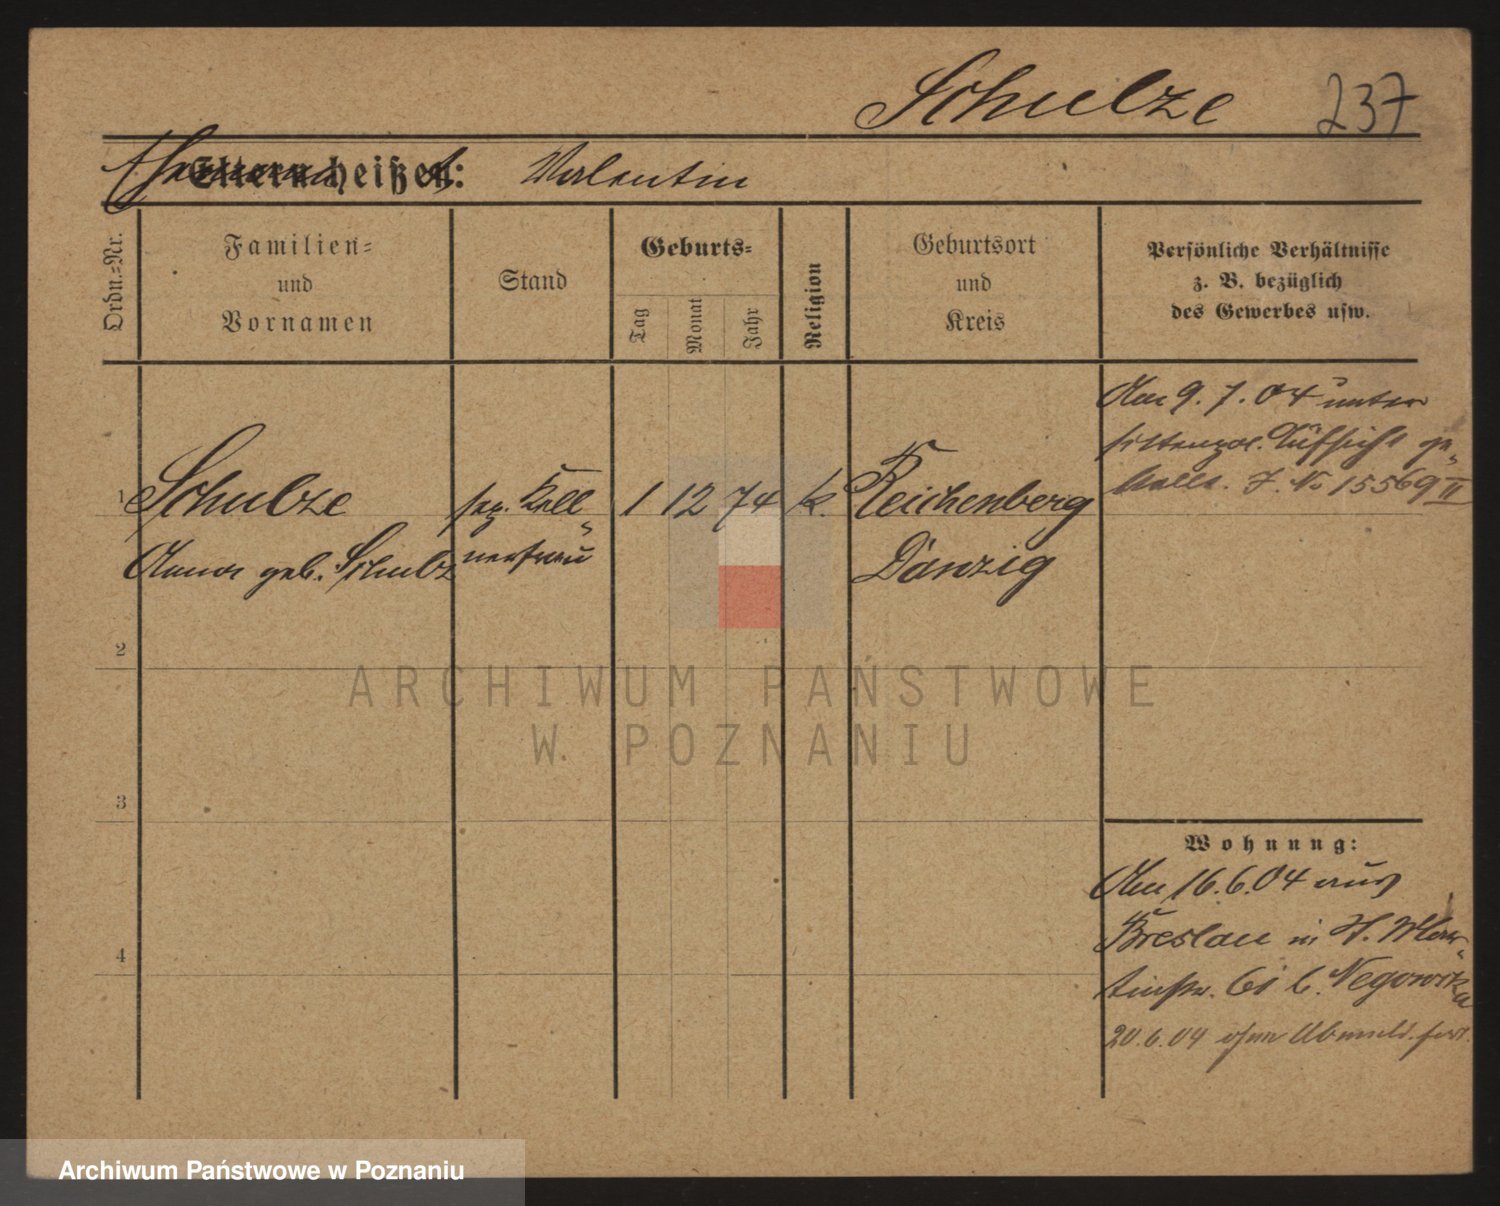 Schulze 237
Ehemann heißt: Valentin
Ordn.=Nr.
Familien=
und
Vornamen
Stand
Geburts=
Tag
Monat
Jahr
Religion
Geburtsort
und
Kreis
Persönliche Verhältnisse
z. B. bezüglich
des Gewerbes usw.
Am 9. 7. 04 unter
sittenpol. Aufsicht ge-
stellt. J. No 15569 II
1 Schulze sep. Kell- 1 12 74 k. Reichenberg
Anna geb. Schulz nerfrau Danzig
2
3
4
Wohnung:
Am 16. 6. 04 aus
Breslau in St. Mar-
tinstr. 61 b.
20. 6. 04 ohne Abmeld. fort.
ARCHIWUM PAŃSTWOWE
W POZNANIU
Archiwum Państwowe w Poznaniu